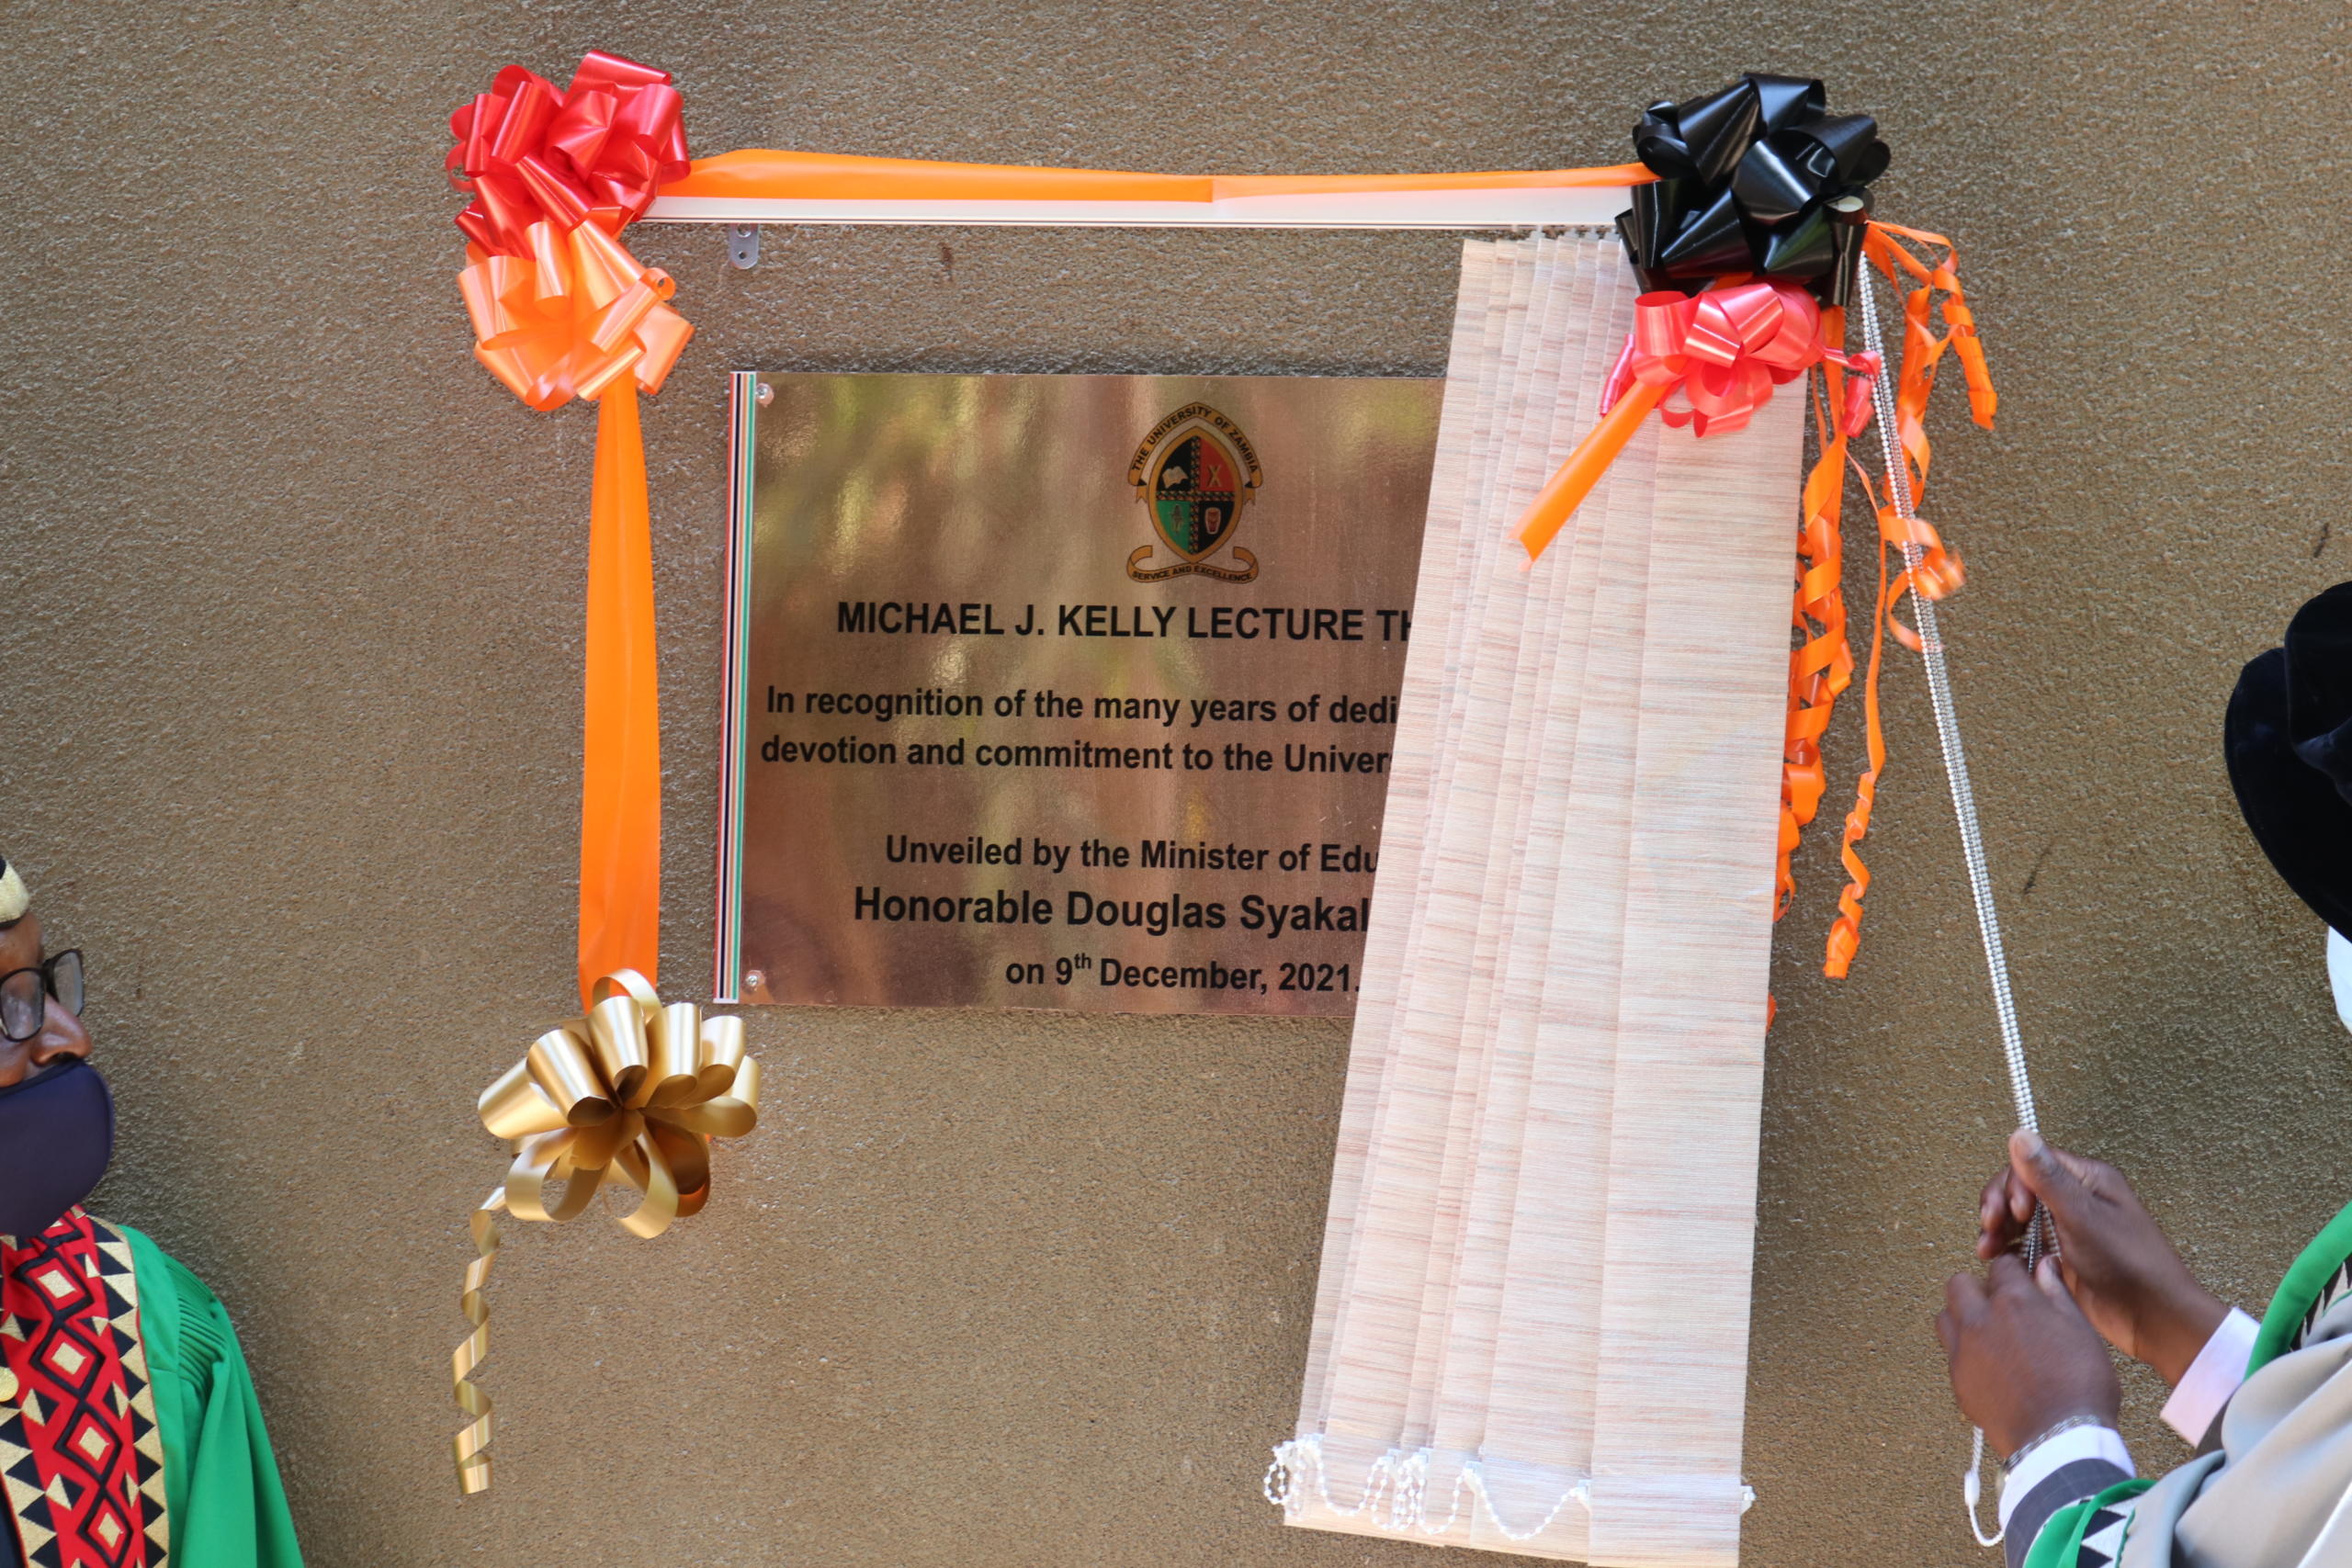 THE UNIVERSITY OF ZAMBIA
SERVICE AND EXCELLENCE
MICHAEL J. KELLY LECTURE TH
In recognition of the many years of dedi
devotion and commitment to the Univers
Unveiled by the Minister of Edu
Honorable Douglas Syakal
on 9th December, 2021.